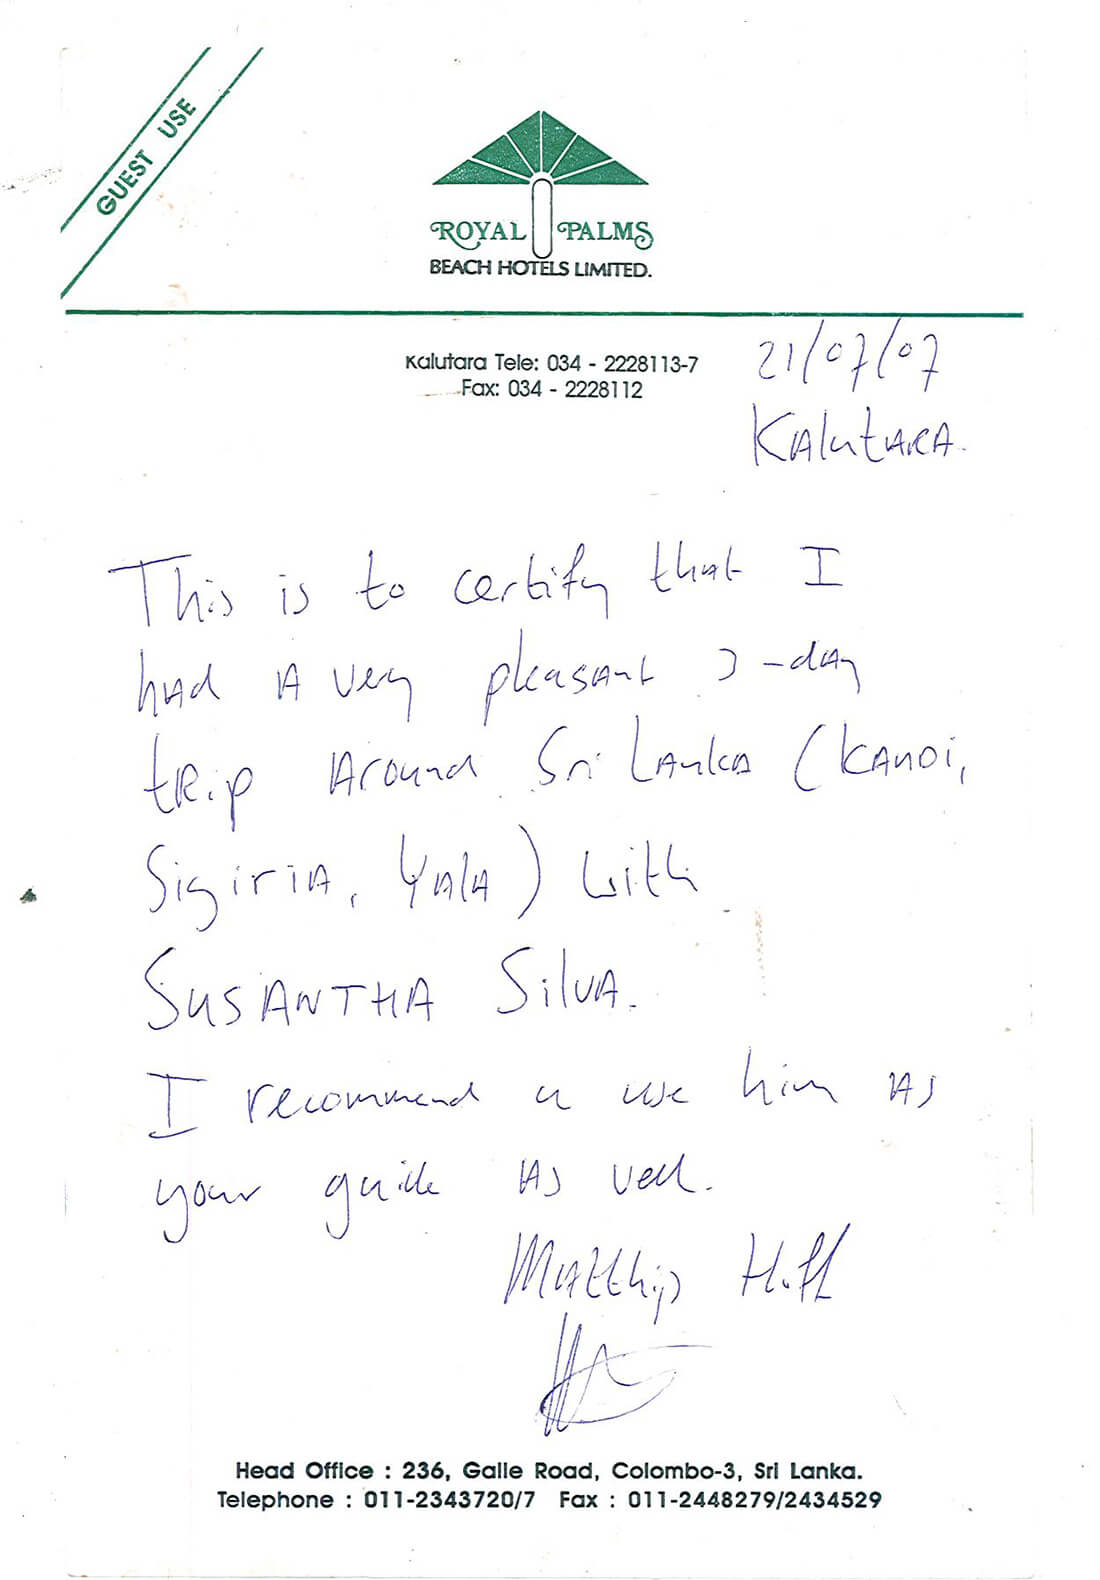 GUEST USE
ROYAL PALMS
BEACH HOTELS LIMITED.
Kalutara Tele: 034 - 2228113-7
Fax: 034 - 2228112
21/07/07
Kalutara.
This is to certify that I
had a very pleasant 3-day
trip around Sri Lanka (Kandi,
Sigiria, Yala) with
SUSANTHA Silva.
I recommend u use him as
your guide as well.
Head Office : 236, Galle Road, Colombo-3, Sri Lanka.
Telephone : 011-2343720/7 Fax : 011-2448279/2434529